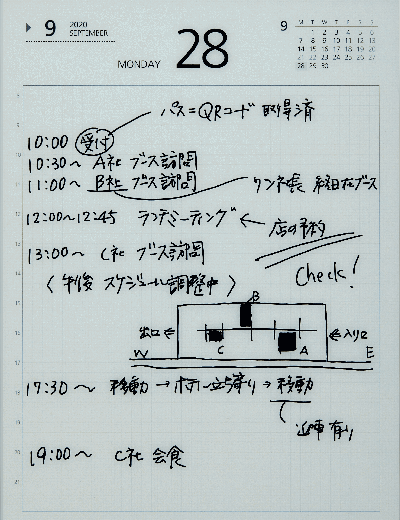 9 2020 SEPTEMBER
MONDAY 28
9
M T W T F S S
1 2 3 4 5 6
7 8 9 10 11 12 13
14 15 16 17 18 19 20
21 22 23 24 25 26 27
28 29 30
パス=QRコード 取得済
10:00 受付
10:30〜 A社 ブース訪問
11:00〜 B社 ブース訪問
経由ブース
12:00〜12:45 ランチミーティング ← 店の予約
13:00〜 C社 ブース訪問
Check!
(午後 スケジュール調整中)
B
出口← ←入り口
C A
W E
17:30〜 移動→ホテル立ち寄り→移動
迎車有り
19:00〜 C社 会食